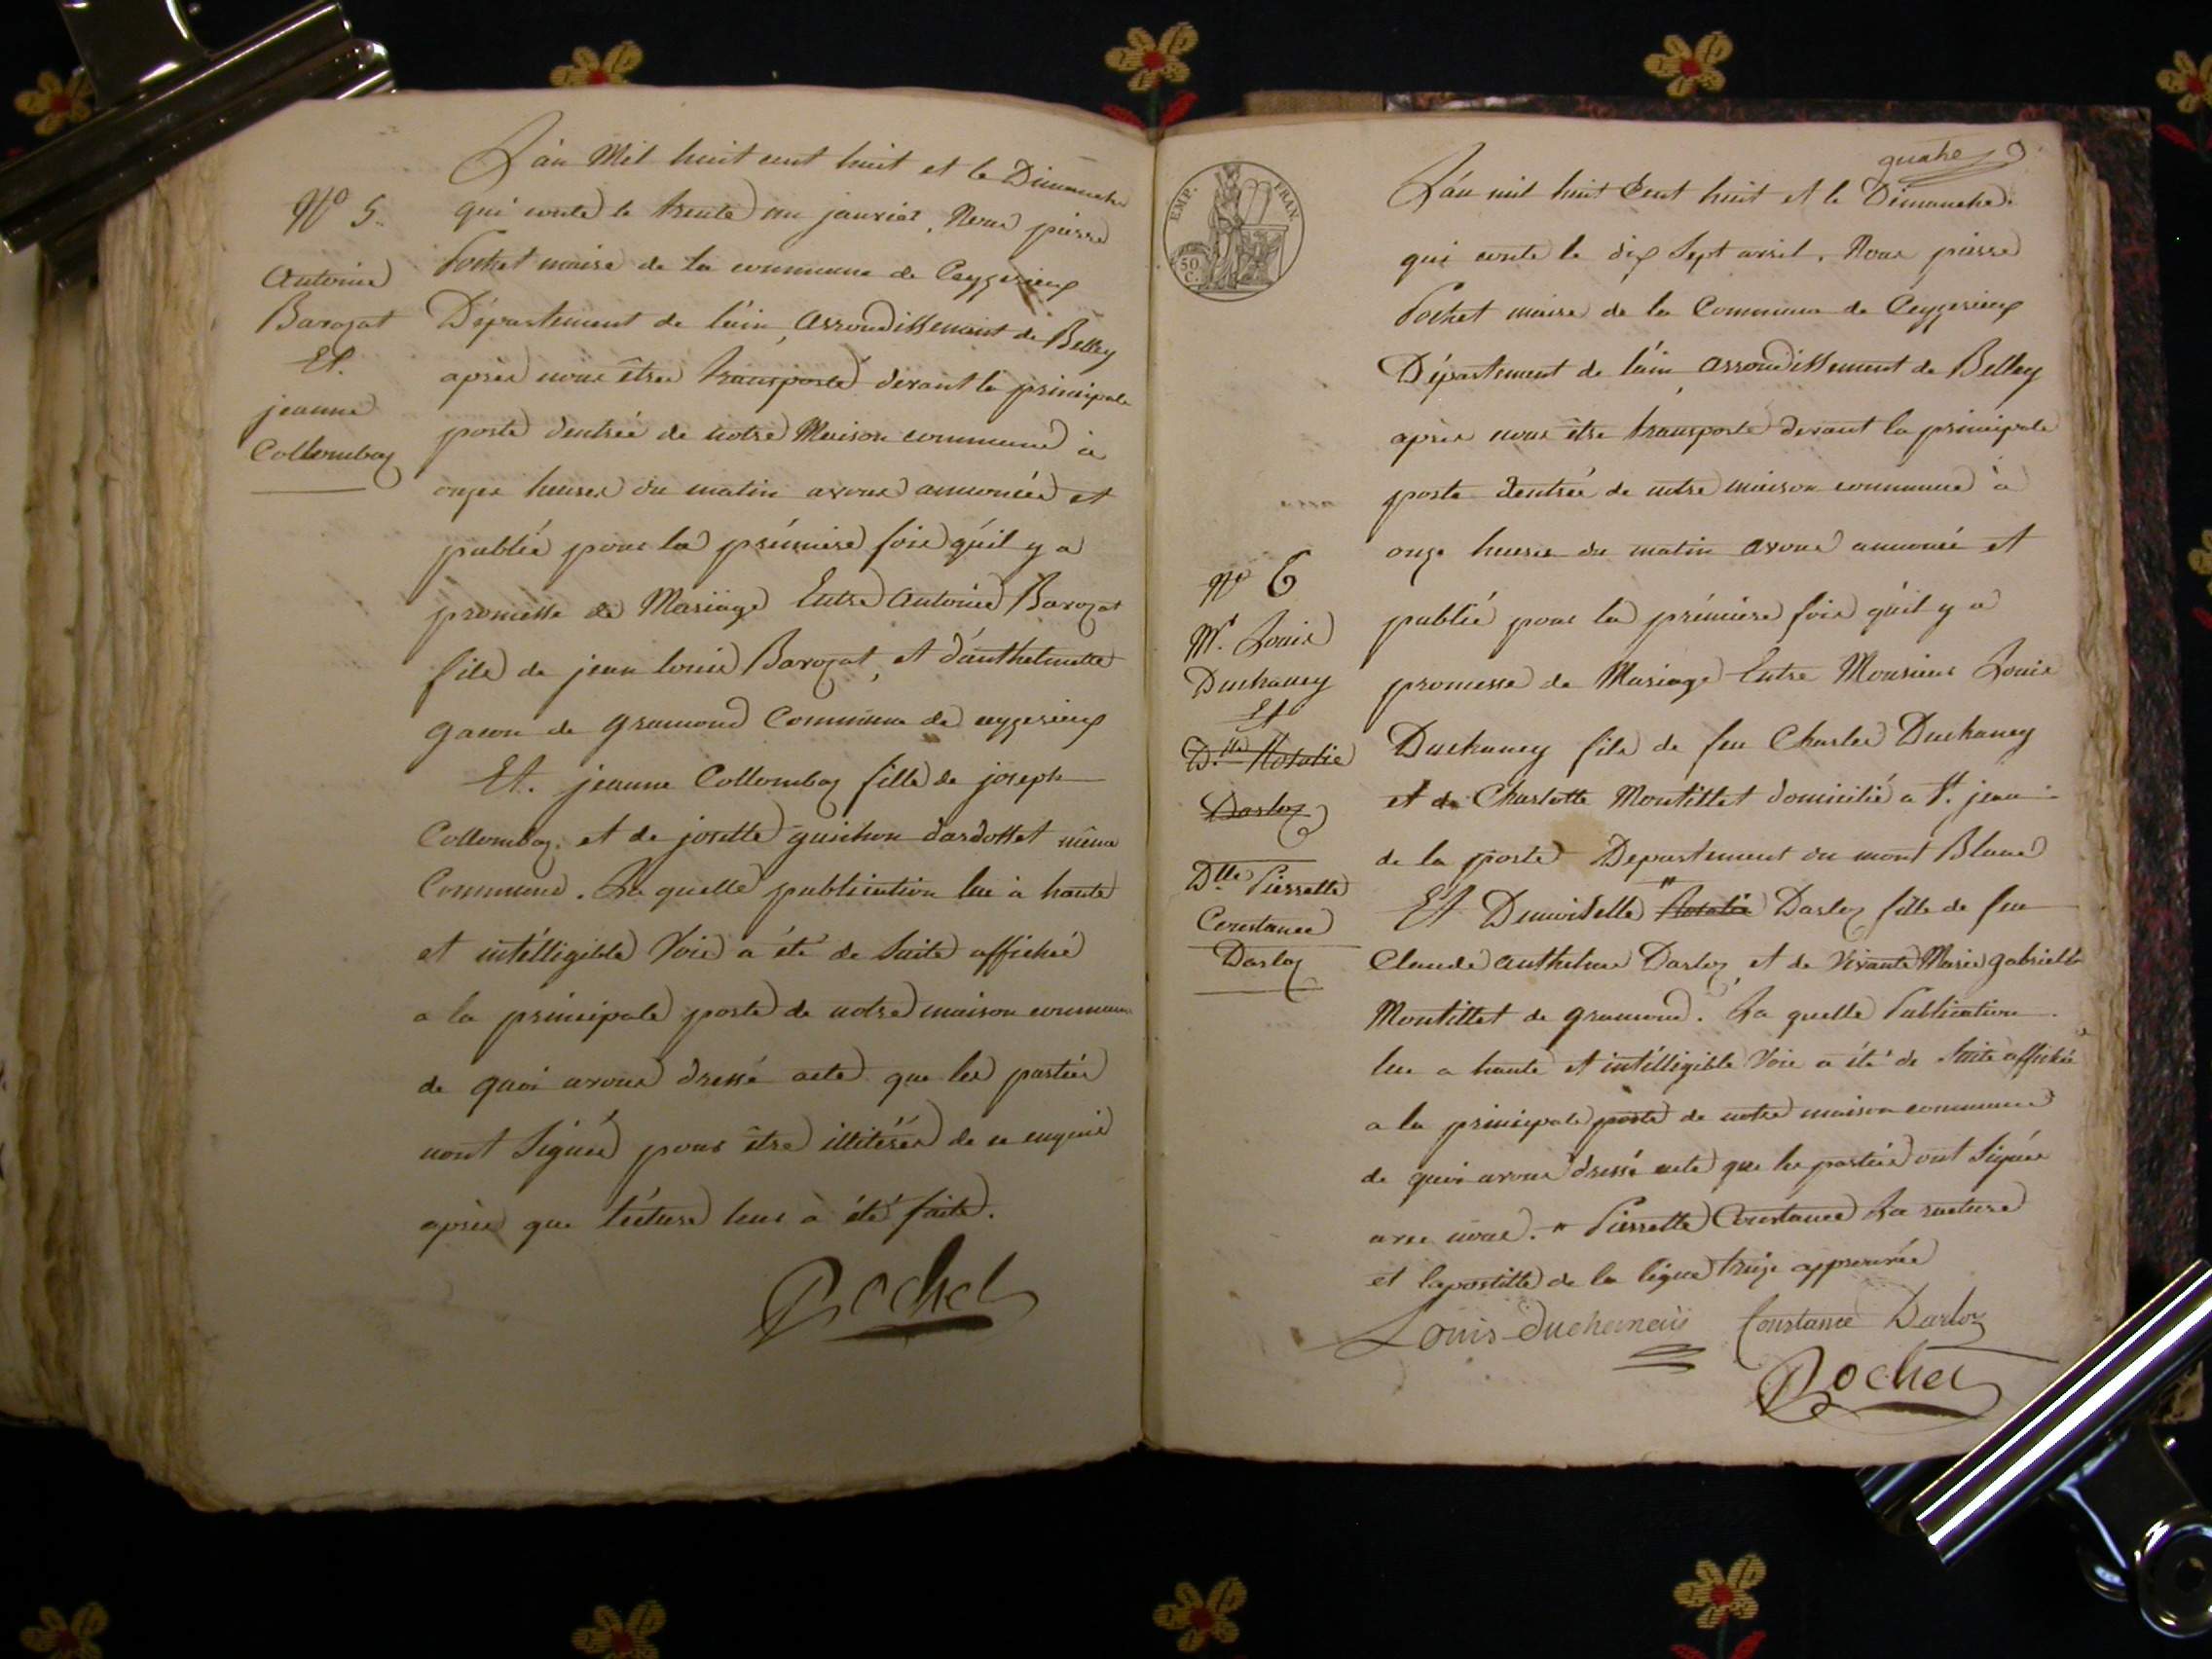 L'an Mil huit cent huit et le Dimanche
qui conte le trente un janvier, Nous pierre
Pochet maire de la commune de Ceyzerieux
Département de l'ain, Arrondissement de Belley
après nous être transporté devant la principale
porte d'entrée de notre Maison commune à
onzes heures du matin avons annoncée et
publié pour la prémiere fois qu'il y a
promesse de Mariage Entre Antoine Barozat
fils de jean louis Barozat, et d'anthelmette
gacon de gramond Commune de ceyzerieux
Et. jeanne Collombaz fille de joseph
Collombaz et de josette guichon d'ardosset même
Commune. La quelle publication lue à haute
et intélligible Voix a été de Suite affiché
a la principale porte de notre maison commune
de quoi avons dressé acte que les parties
n'ont Signés pour être illitérés de ce enquis
après que lécture leur à été faite.
Pochet
N° 5.
Antoine
Barozat
Et.
jeanne
Collombaz
quatre
EMP. FRAN.
50 C.
L'an mil huit Cent huit et le Dimanche
qui conte le dix Sept avril, Nous pierre
Pochet maire de la Commune de Ceyzerieux
Département de l'ain, arrondissement de Belley
après nous être transporté devant la principale
porte d'entrée de notre maison commune à
onze heures du matin avons annoncé et
publié pour la prémiere fois qu'il y a
promesse de Mariage Entre Monsieur Louis
Duchaney fils de feu Charles Duchaney
et de Charlotte Montillet domicilié a St. jean
de la porte Departement du mont Blanc
Et Demoiselle " Rosalie Darloz fille de feu
Claude anthelme Darloz, et de Vivante Marie gabrielle
Montillet de gramond. La quelle Publication
lue a haute et intélligible Voix a été de Suite affichée
a la principale porte de notre maison commune
de quoi avons dressé acte que les parties ont Signées
avec nous. " Pierrette Constance La rature
et lapostille de la ligne treize approuvée
Louis Duchaney Constance Darloz
Pochet
N° 6
Mr. Louis
Duchaney
Et
Dlle Rosalie
Darloz
Dlle Pierrette
Constance
Darloz